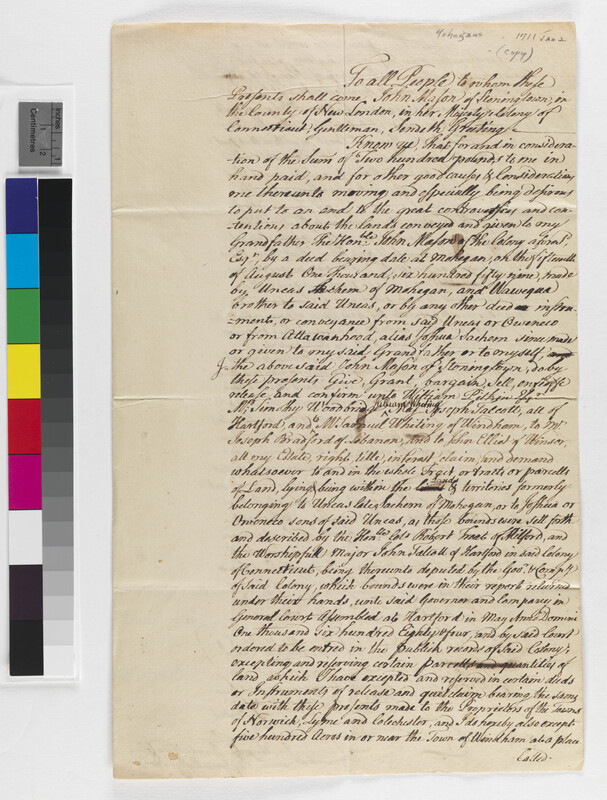 Mohegans 1711 Jan 2
(Copy)
To all People to whom these
Presents shall come, John Mason of Stoningtown, in
the County of New London, in her Majestys Colony of
Connecticut, Gentleman, Sendeth Greeting
Know ye, that for and in considera-
tion of the Sum of Two hundred pounds to me in
hand paid, and for other good causes & Considerations
me thereunto moving and especially being desirous
to put to an end to the great controversies and con-
tentions about the lands conveyed and given to my
Grandfather The Honble John Mason of the Colony afores,
Esqr, by a deed bearing date at Mohegan, on the fifteenth
of August One Thousand, six hundred fifty nine, made
by Uncas Sachem of Mohegan, and Wawequa
brother to said Uncas, or by any other deed instru-
-ments, or conveyance from said Uncas or Oweneco
or from Attawanhood, alias Joshua Sachem since made
or given to my said Grandfather or to myself,
I the above said John Mason of Stoningtown, do by
these presents Give, Grant, bargain, Sell,
release, and confirm unto William Pitkin Esqr
Mr. Timothy Woodbridge William Whiting Joseph Talcott, all of
Hartford, and Mr Samuel Whiting of Windham, to Mr
Joseph Bradford of Lebanon, and to John Elliot of Winsor,
all my Estate, right, title, interest, claim, and demand
whatsoever to and in the whole Tract, or tracts or parcells
of Land, lying & being within the lands & territories formerly
belonging to Uncas late Sachem of Mohegan, or to Joshua or
Owoneco sons of said Uncas, as those bounds were sett forth
and described by the Honble Colo Robert Treat of Milford, and
the Worshipfull Major John Talcott of Hartford in said Colony
of Connecticut, being thereunto deputed by the Govr & Compy
of said Colony, which bounds were in their report returned
under their hands, unto said Governor and Company in
General Court Assembled at Hartford in May Anno Domini
One thousand six hundred Eighty & four, and by said Court
ordered to be entred in the publick records of said Colony;
excepting and reserving certain parcells and quantities of
land which I have excepted and reserved in certain deeds
or Instruments of release and quitclaim bearing the same
date with these presents made to the Proprietors of the Towns
of Norwich, Lyme and Colchester, and I do hereby also except
five hundred Acres in or near the Town of Windham at a place
Called